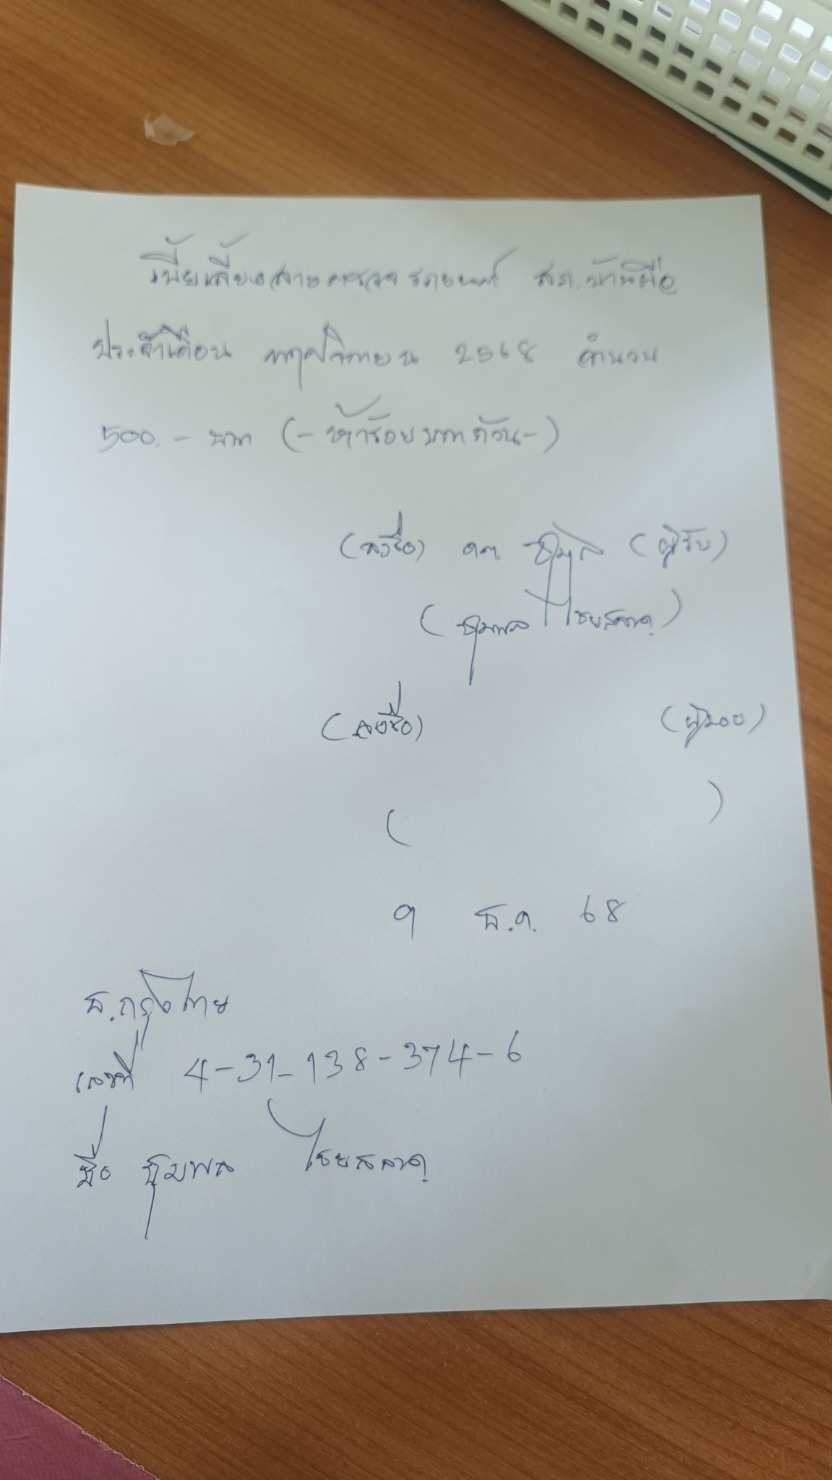 เบี้ยเลี้ยงสายตรวจรถยนต์ สภ.บ้านผือ
ประจำเดือน พฤศจิกายน 2568 จำนวน
500.- บาท (-ห้าร้อยบาทถ้วน-)
(ลงชื่อ) ด.ต. (ผู้รับ)
(ชุมพล ไชยสลาด)
(ลงชื่อ) (ผู้มอบ)
( )
9 ธ.ค. 68
ธ.กรุงไทย
เลขที่ 4-31-138-374-6
ชื่อ ชุมพล ไชยสลาด